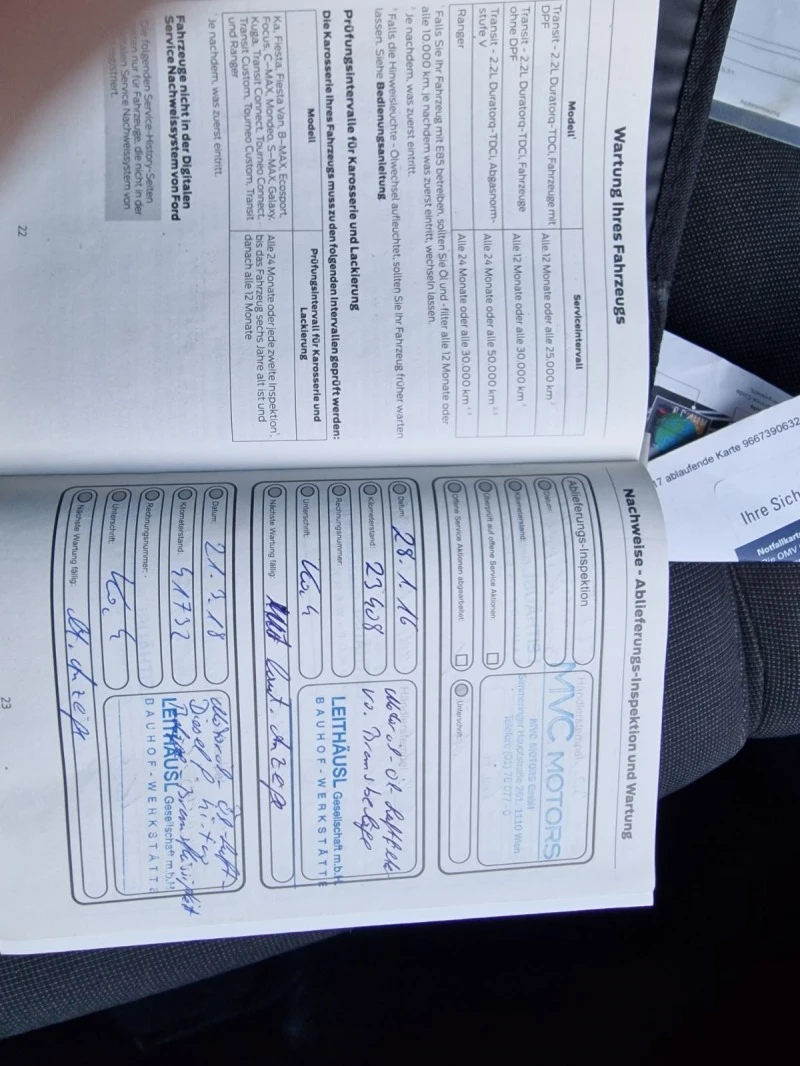 Wartung Ihres Fahrzeugs
Modell¹
Serviceintervall
Transit - 2.2L Duratorq-TDCi, Fahrzeuge mit DPF
Alle 12 Monate oder alle 25.000 km
Transit - 2.2L Duratorq-TDCi, Fahrzeuge
ohne DPF
Alle 12 Monate oder alle 30.000 km
Transit - 2.2L Duratorq-TDCi, Abgasnorm-
stufe V
Alle 24 Monate oder alle 50.000 km
Ranger
Alle 24 Monate oder alle 30.000 km
Falls Sie Ihr Fahrzeug mit E85 betreiben, sollten Sie Öl und -filter alle 12 Monate oder
alle 10.000 km, je nachdem was zuerst eintritt, wechseln lassen.
Je nachdem, was zuerst eintritt.
Falls die Hinweisleuchte - Ölwechsel aufleuchtet, sollten Sie Ihr Fahrzeug früher warten
lassen. Siehe Bedienungsanleitung
Prüfungsintervalle für Karosserie und Lackierung
Die Karosserie Ihres Fahrzeugs muss zu den folgenden Intervallen geprüft werden:
Modell
Prüfungsintervall für Karosserie und
Lackierung
Ka, Fiesta, Fiesta Van, B-MAX, Ecosport,
Focus, C-MAX, Mondeo, S-MAX, Galaxy,
Kuga, Transit Connect, Tourneo Connect,
Transit Custom, Tourneo Custom, Transit
und Ranger
Alle 24 Monate oder jede zweite Inspektion,
bis das Fahrzeug sechs Jahre alt ist und
danach alle 12 Monate
Je nachdem, was zuerst eintritt.
Fahrzeuge nicht in der Digitalen
Service Nachweissystem von Ford
Die folgenden Service-History-Seiten
nur für Fahrzeuge, die nicht in der
Service Nachweissystem von
22
Nachweise - Ablieferungs-Inspektion und Wartung
Ablieferungs-Inspektion
Datum:
Kilometerstand:
Überprüft auf offene Service Aktionen:
Offene Service Aktionen abgearbeitet:
Händlerstempel
MVC MOTORS
MVC MOTORS GmbH
Simmeringer Hauptstraße 261, 1110 Wien
Unterschrift:
Datum: 28.1.16
Kilometerstand: 23408
Rechnungsnummer:
Unterschrift:
Nächste Wartung fällig:
LEITHÄUSL Gesellschaft m.b.H.
BAUHOF-WERKSTÄTTE
Datum: 21.3.18
Kilometerstand: 41732
Rechnungsnummer:
Unterschrift:
Nächste Wartung fällig:
LEITHÄUSL Gesellschaft m.b.H.
BAUHOF-WERKSTÄTTE
23
ablaufende Karte 9667390632
Ihre Sich
Notfallkart
OMV